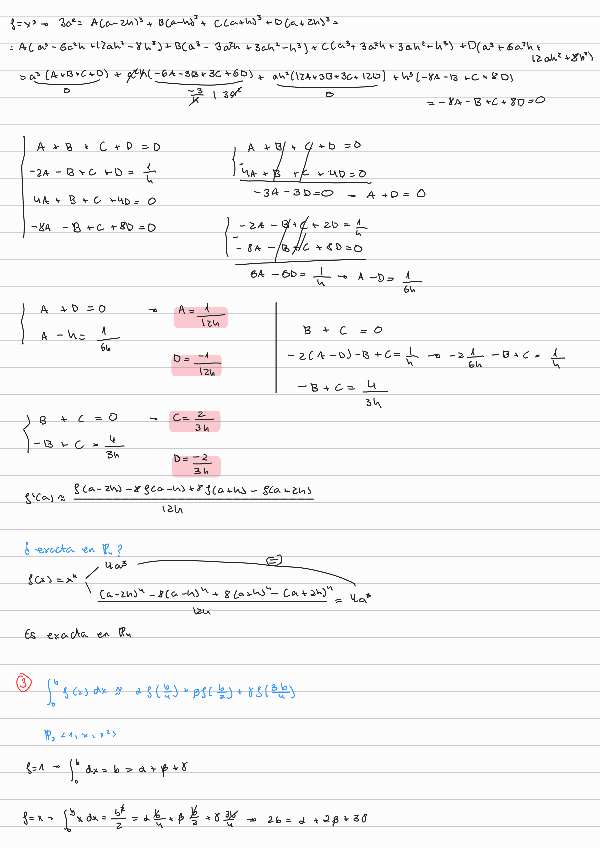 f=x³ → 3a² = A(a-2h)³ + B(a-h)³ + C(a+h)³ + D(a+2h)³ =
= A(a³-6a²h+12ah²-8h³) + B(a³-3a²h+3ah²-h³) + C(a³+3a²h+3ah²+h³) + D(a³+6a²h+
12ah²+8h³)
= a³(A+B+C+D) + a²h(-6A-3B+3C+6D) + ah²(12A+3B+3C+12D) + h³(-8A-B+C+8D)
0 3/h | 3a² 0 = -8A-B+C+8D=0
A + B + C + D = 0
-2A - B + C + D = 1/h
4A + B + C + 4D = 0
-8A - B + C + 8D = 0
A + B + C + D = 0
4A + B + C + 4D = 0
-3A - 3D = 0 → A + D = 0
-2A - B + C + 2D = 1/h
-8A - B + C + 8D = 0
6A - 6D = 1/h → A - D = 1/6h
A + D = 0 → A = 1/12h
A - h = 1/6h
D = -1/12h
B + C = 0
-2(A-D) - B + C = 1/h → -2 1/6h - B + C = 1/h
-B + C = 4/3h
B + C = 0 → C = 2/3h
-B + C = 4/3h
D = -2/3h
f'(a) ≈ f(a-2h) - 8f(a-h) + 8f(a+h) - f(a+2h) / 12h
¿exacta en P₄?
4a³ (=)
f(x) = x⁴
(a-2h)⁴ - 8(a-h)⁴ + 8(a+h)⁴ - (a+2h)⁴ / 12h = 4a³
Es exacta en P₄
3 ∫₀ᵇ f(x) dx ≈ α f(b/4) + β f(b/2) + γ f(3b/4)
P₂ <1, x, x²>
f=1 → ∫₀ᵇ dx = b = α + β + γ
f=x → ∫₀ᵇ x dx = b²/2 = α b/4 + β b/2 + γ 3b/4 → 2b = α + 2β + 3γ